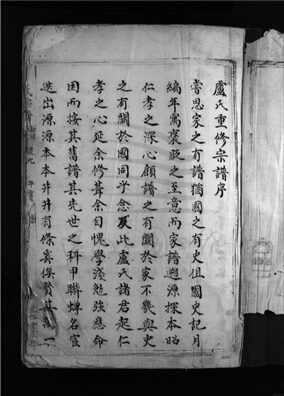 盧氏重修宗譜序
嘗思家之有譜猶國之有史但國史記月
編年寓褒貶之至意而家譜遡源探本昭
仁孝之深心顧譜之有關於家不幾與史
之有關於國同乎念及此盧氏諸君起仁
孝之心延余修葺余自愧學淺勉強應命
因而按其舊譜其先世之科甲聯蟬名宦
迭出源源本本井井有條奚俟贅其一